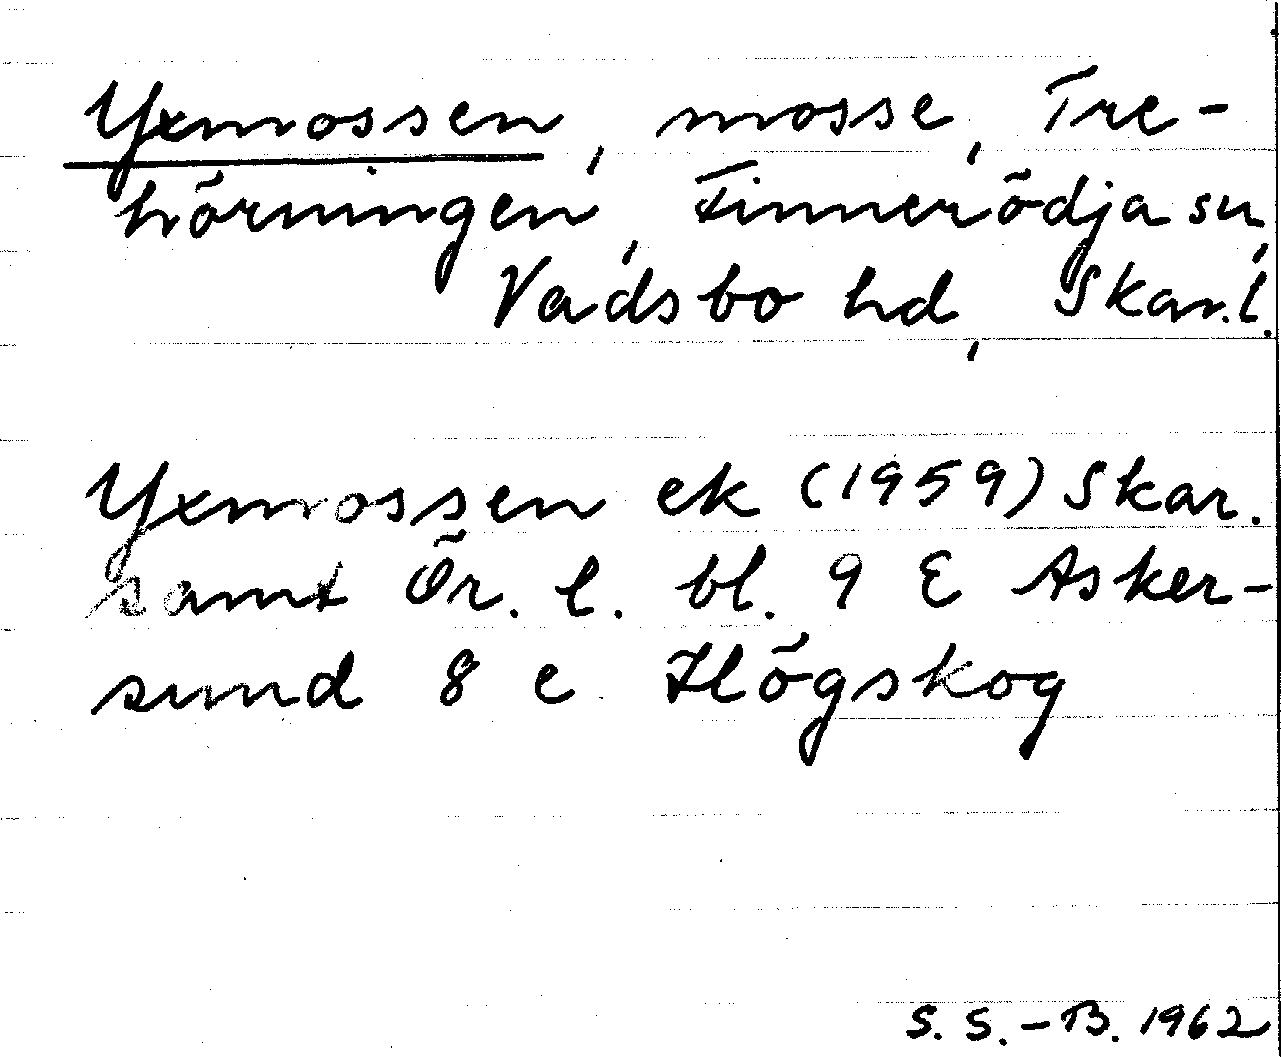 Yxmossen, mosse, Tre-
hörningen, Finnerödja sn,
Vadsbo hd, Skar.l.
Yxmossen ek (1959) Skar.
samt Ör. l. bl. 9 E Asker-
sund 8 e Högskog
S. S.-B. 1962